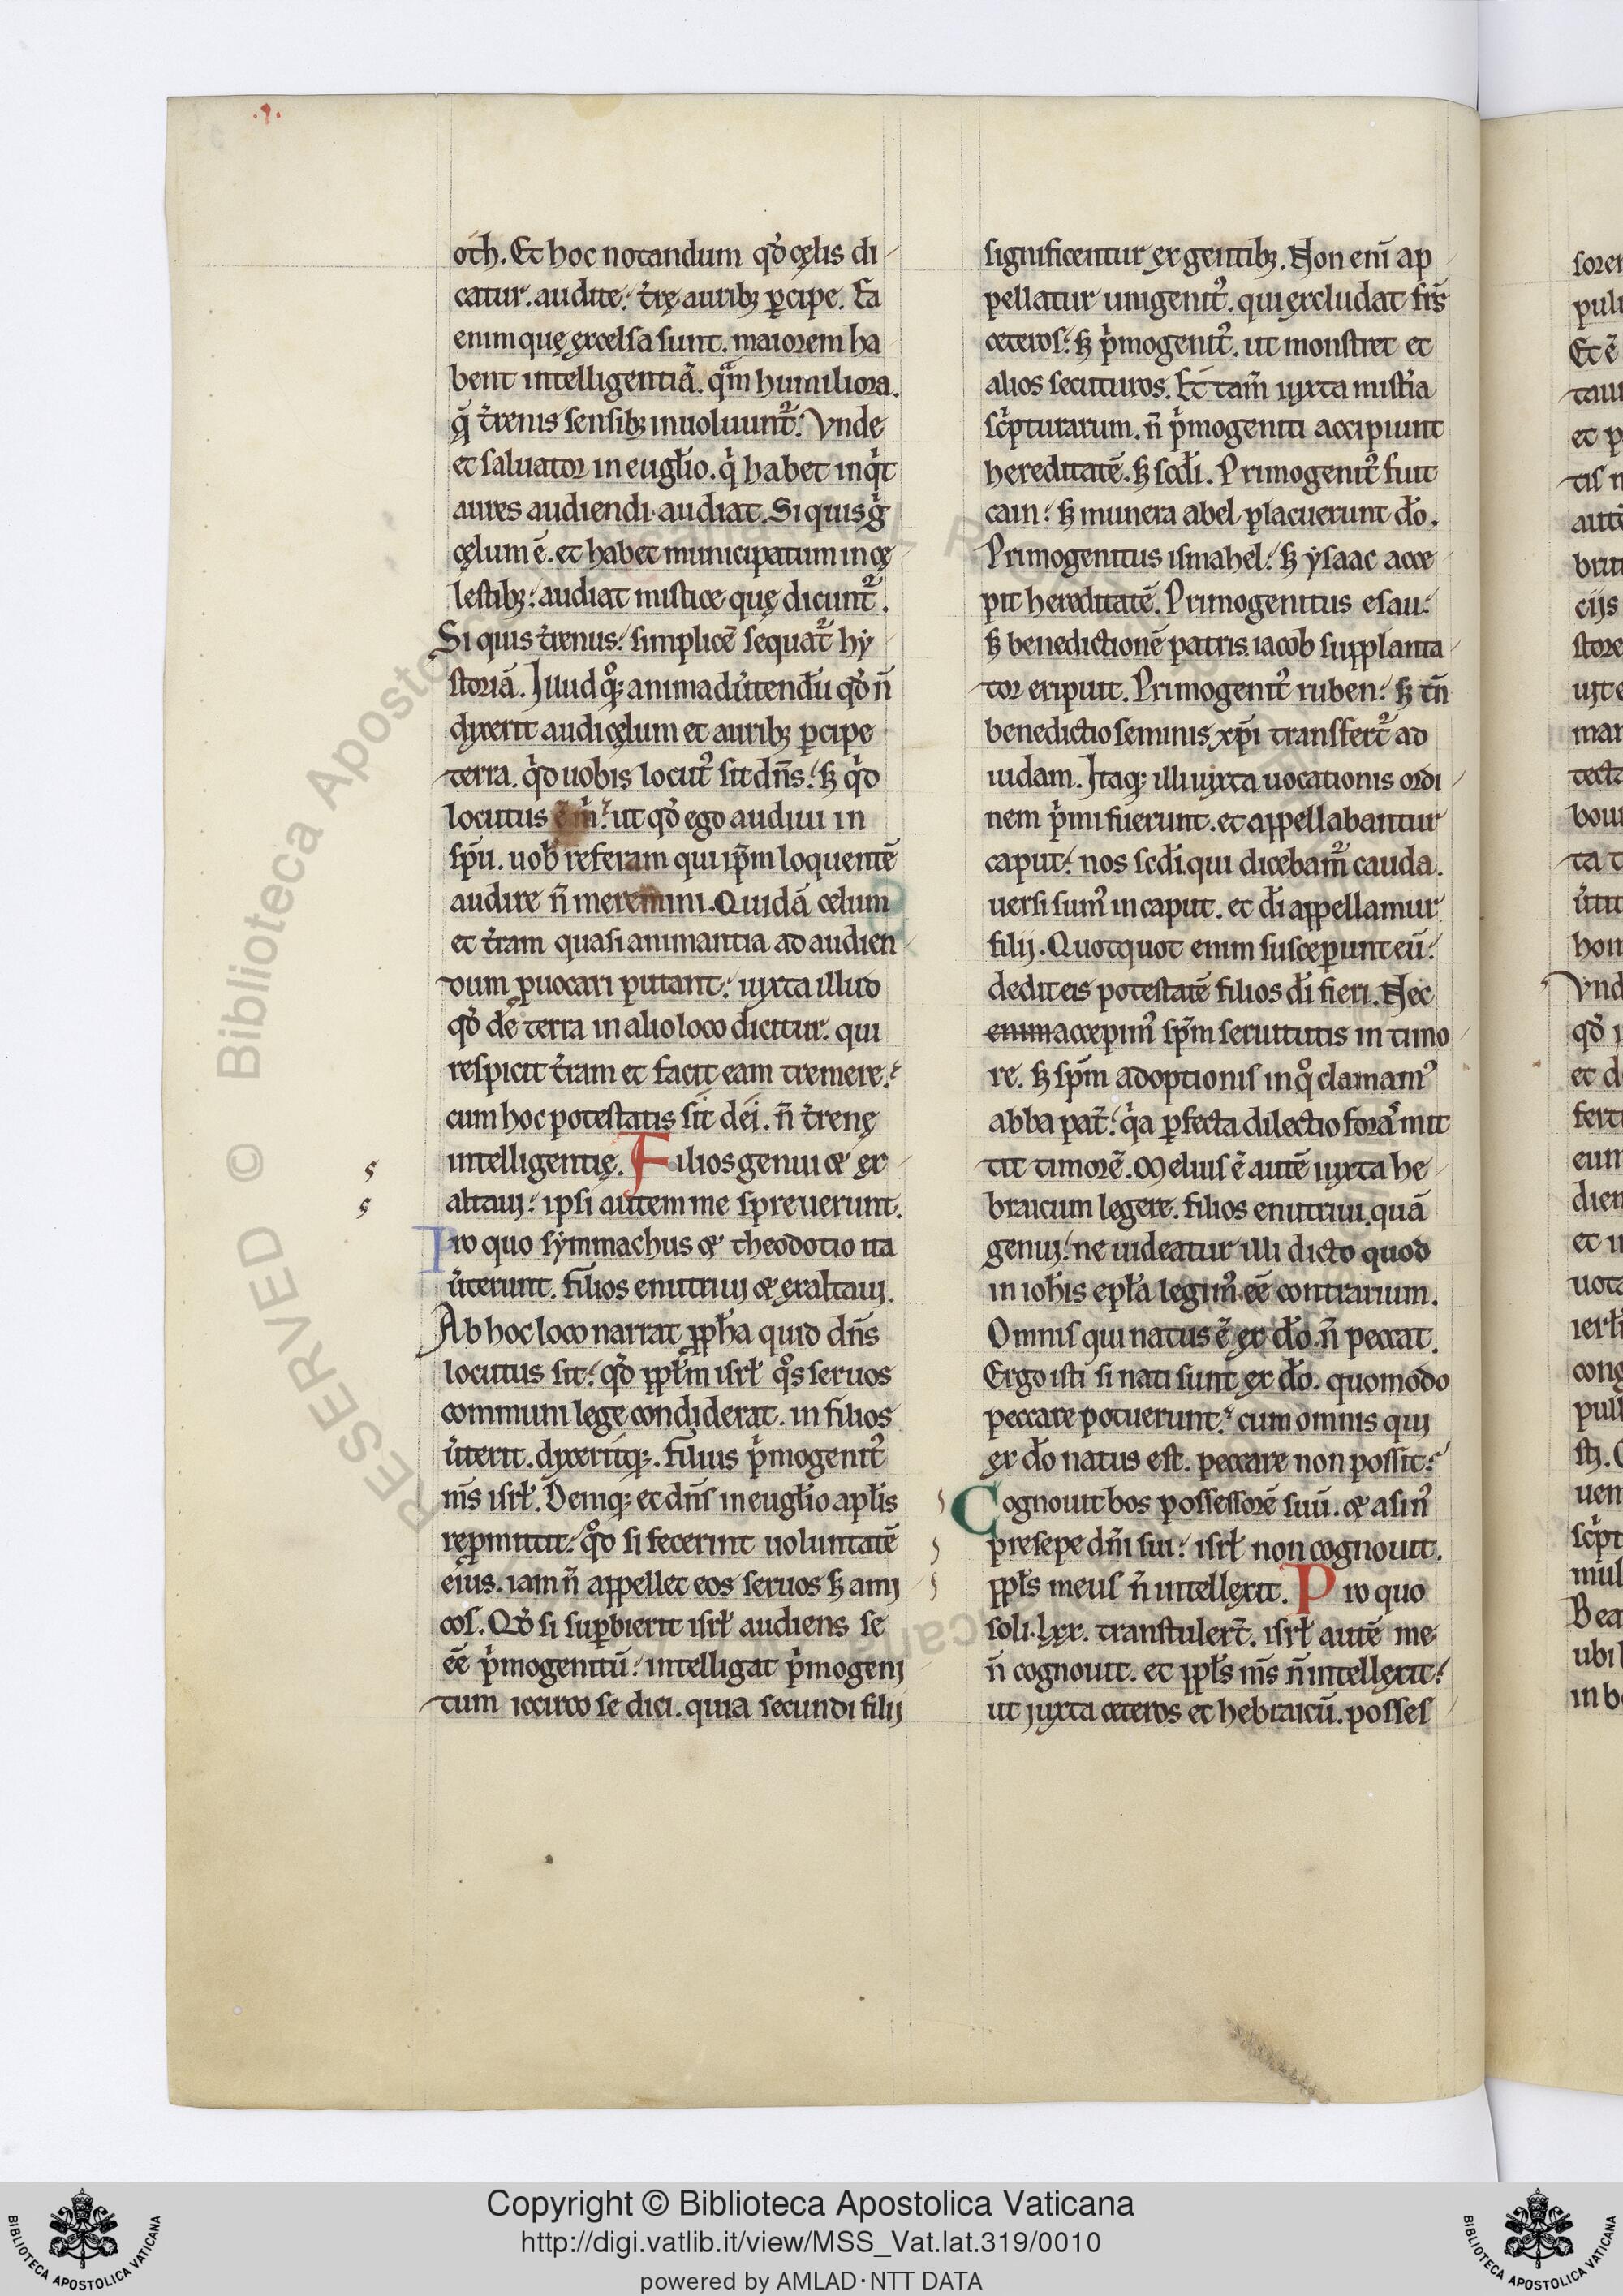 oth. Et hoc notandum qđ cęlis di
catur. audite. t̄rę aurib; ꝑcipe. Ea
enim quę excelsa sunt. maiorem ha
bent intelligentiā. qᵃ̄m humiliora.
q̄ t̄renis sensib; inuoluunt᷑. Vnde
et saluator in eugl̄io. qͥ habet inqͥt
aures audiendi audiat. Si quis g̊
cęlum ē. et habet municipatum in cę
lestib;. audiat mistice quę dicunt᷑.
Si quis t̄renus. simplicē sequat᷑ hẏ
storiā. Illud qͦ; animaduͥtendū qđ n̄
dixerit audi cęlum et aurib; ꝑcipe
terra. qͥd uobis locutꝰ sit dn̄s. sꝫ qͥd
locutus ē m̄. ut qđ ego audiui in
sp̄u. uob̄ referam qui ip̄m loquentē
audire n̄ meremini. Quidā celum
et t̄ram quasi animantia ad audien
dum ꝓuocari putant. iuxta illud
qđ de terra in alio loco dicitur. qui
respicit t̄ram et facit eam tremere.
cum hoc potestatis sit dei. n̄ t̄renę
intelligentię. Filios genui et ex
altaui. ipsi autem me spreuerunt.
Pro quo sẏmmachus et theodotio ita
uͥterunt. filios enutriui et exaltaui.
Ab hoc loco narrat ꝓph̄a quid dn̄s
locutus sit. qđ ppl̄m isrł qͦs seruos
communi lege condiderat. in filios
uͥterit. dixeritq;. filius pͥmogenitꝰ
m̄s isrł. Deniq; et dn̄s in eugl̄io apl̄is
reꝑmittit. qͦd si fecerint uoluntatē
eius. iam n̄ appellet eos seruos sꝫ ami
cos. Qđ si suꝑbierit isrł audiens se
eē pͥmogenitū. intelligat pͥmogeni
tum iccirco se dici. quia secundi filij
significentur ex gentib;. Non eni ap
pellatur unigenitꝰ. qui excludat fr̄s
ceteros. sꝫ pͥmogenitꝰ. ut monstret et
alios secuturos. Et tam̄ iuxta mist̄ia
scͥpturarum. n̄ pͥmogeniti accipiunt
hereditatē. sꝫ scd̄i. Primogenitꝰ fuit
cain. sꝫ munera abel placuerunt dō.
Primogenitus ismahel. sꝫ ẏsaac acce
pit hereditatē. Primogenitus esau.
sꝫ benedictionē patris. iacob supplanta
tor eripuit. Primogenitꝰ ruben. sꝫ tn̄
benedictio seminis xp̄i transfert᷑ ad
iudam. Itaq; illi iuxta uocationis ordi
nem pͥmi fuerunt. et appellabantur
caput. nos scd̄i qui dicebamꝰ cauda.
uersi sumꝰ in caput. et dī appellamur
filij. Quotquot enim susceꝑunt eū.
dedit eis potestatē filios dī fieri. Nec
enim accepimꝰ sp̄m seruitutis in timo
re. sꝫ sp̄m adoptionis in qͦ clamamꝰ
abba pat̄. qͥa ꝑfecta dilectio foras mit
tit timorē. Melius ē autē iuxta he
braicum legere. filios enutriui. quā
genui. ne uideatur illi dicto quod
in ioh̄is epl̄a legimꝰ eē contrarium.
Omnis qui natus ē ex dō. n̄ peccat.
Ergo isti si nati sunt ex dō. quomodo
peccare potuerunt. cum omnis qui
ex dō natus est. peccare non possit.
Cognouit bos possessorē suū. et asinꝰ
presepe dn̄i sui. isrł non cognouit.
ppl̄s meus n̄ intellexit. Pro quo
soli lxx. transtulert̄. isrł autē me
n̄ cognouit. et ppl̄s m̄s n̄ intellexit.
ut iuxta ceteros et hebraicū. posses
RESERVED © Biblioteca Apostolica Vaticana
Copyright © Biblioteca Apostolica Vaticana
http://digi.vatlib.it/view/MSS_Vat.lat.319/0010
powered by AMLAD·NTT DATA
BIBLIOTECA APOSTOLICA VATICANA
BIBLIOTECA APOSTOLICA VATICANA